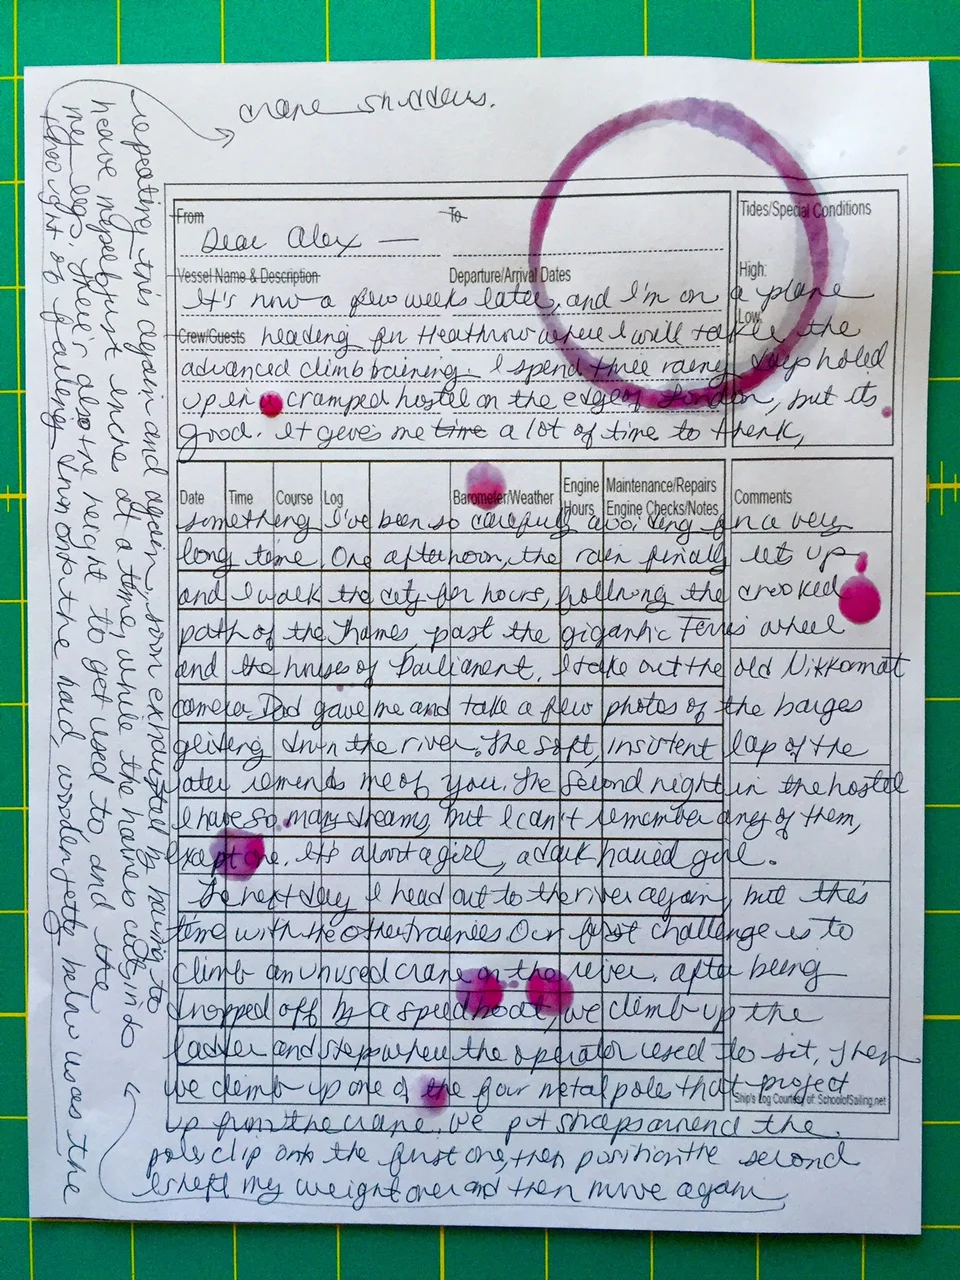 crane shudders.
From
To
Dear Alex —
Tides/Special Conditions
Vessel Name & Description
Departure/Arrival Dates
High:
Low:
It's now a few weeks later, and I'm on a plane
Crew/Guests
heading for Heathrow where I will take the
advanced climb training. I spend three rainy days holed
up in cramped hostel on the edge of London, but its
good. It gives me time a lot of time to think,
Date
Time
Course
Log
Barometer/Weather
Engine Hours
Maintenance/Repairs
Engine Checks/Notes
Comments
something I've been so carefully avoiding for a very
long time. One afternoon, the rain finally let up
and I walk the city for hours, following the crooked
path of the Thames, past the gigantic Ferris wheel
and the houses of Parliament. I take out the old Nikkormat
camera Dad gave me and take a few photos of the barges
gliding down the river. The soft, insistent lap of the
water reminds me of you. The second night in the hostel
I have so many dreams, but I can't remember any of them,
except one. It's about a girl, a dark haired girl.
The next day I head out to the river again, but this
time with the other trainees. Our first challenge is to
climb an unused crane on the river. After being
dropped off by a speedboat, we climb up the
ladder and steps where the operator used to sit, then
we climb up one of the four metal poles that project
Ship's Log Courtesy of: SchoolofSailing.net
up from the crane. We put straps around the
pole, clip onto the first one, then position the second
I shift my weight over and then move again
repeating this again and again, soon exhausted by having to
heave myself just inches at a time, while the harness cuts into
my legs. There's also the height to get used to, and the
thought of falling down onto the hard, wooden jetty below us as the